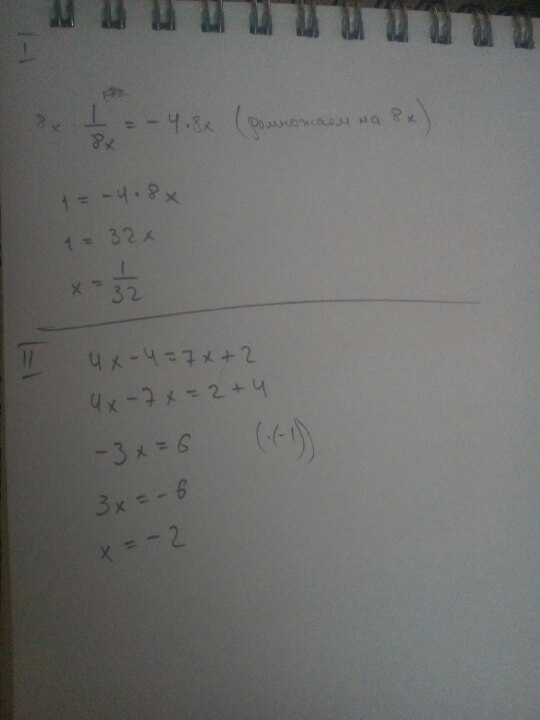 I
8x · 1/8x = -4·8x (домножаем на 8x)
1 = -4·8x
1 = 32x
x = 1/32
II
4x-4=7x+2
4x-7x=2+4
-3x=6 (·(-1))
3x=-6
x=-2